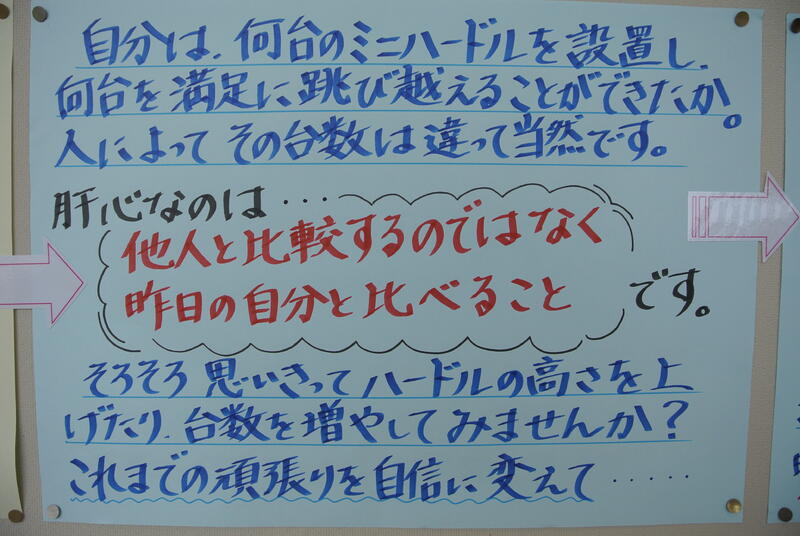 自分は、何台のミニハードルを設置し、
何台を満足に跳び越えることができたか。
人によってその台数は違って当然です。
肝心なのは・・・
他人と比較するのではなく
昨日の自分と比べること
です。
そろそろ思いきってハードルの高さを上
げたり、台数を増やしてみませんか？
これまでの頑張りを自信に変えて・・・・・